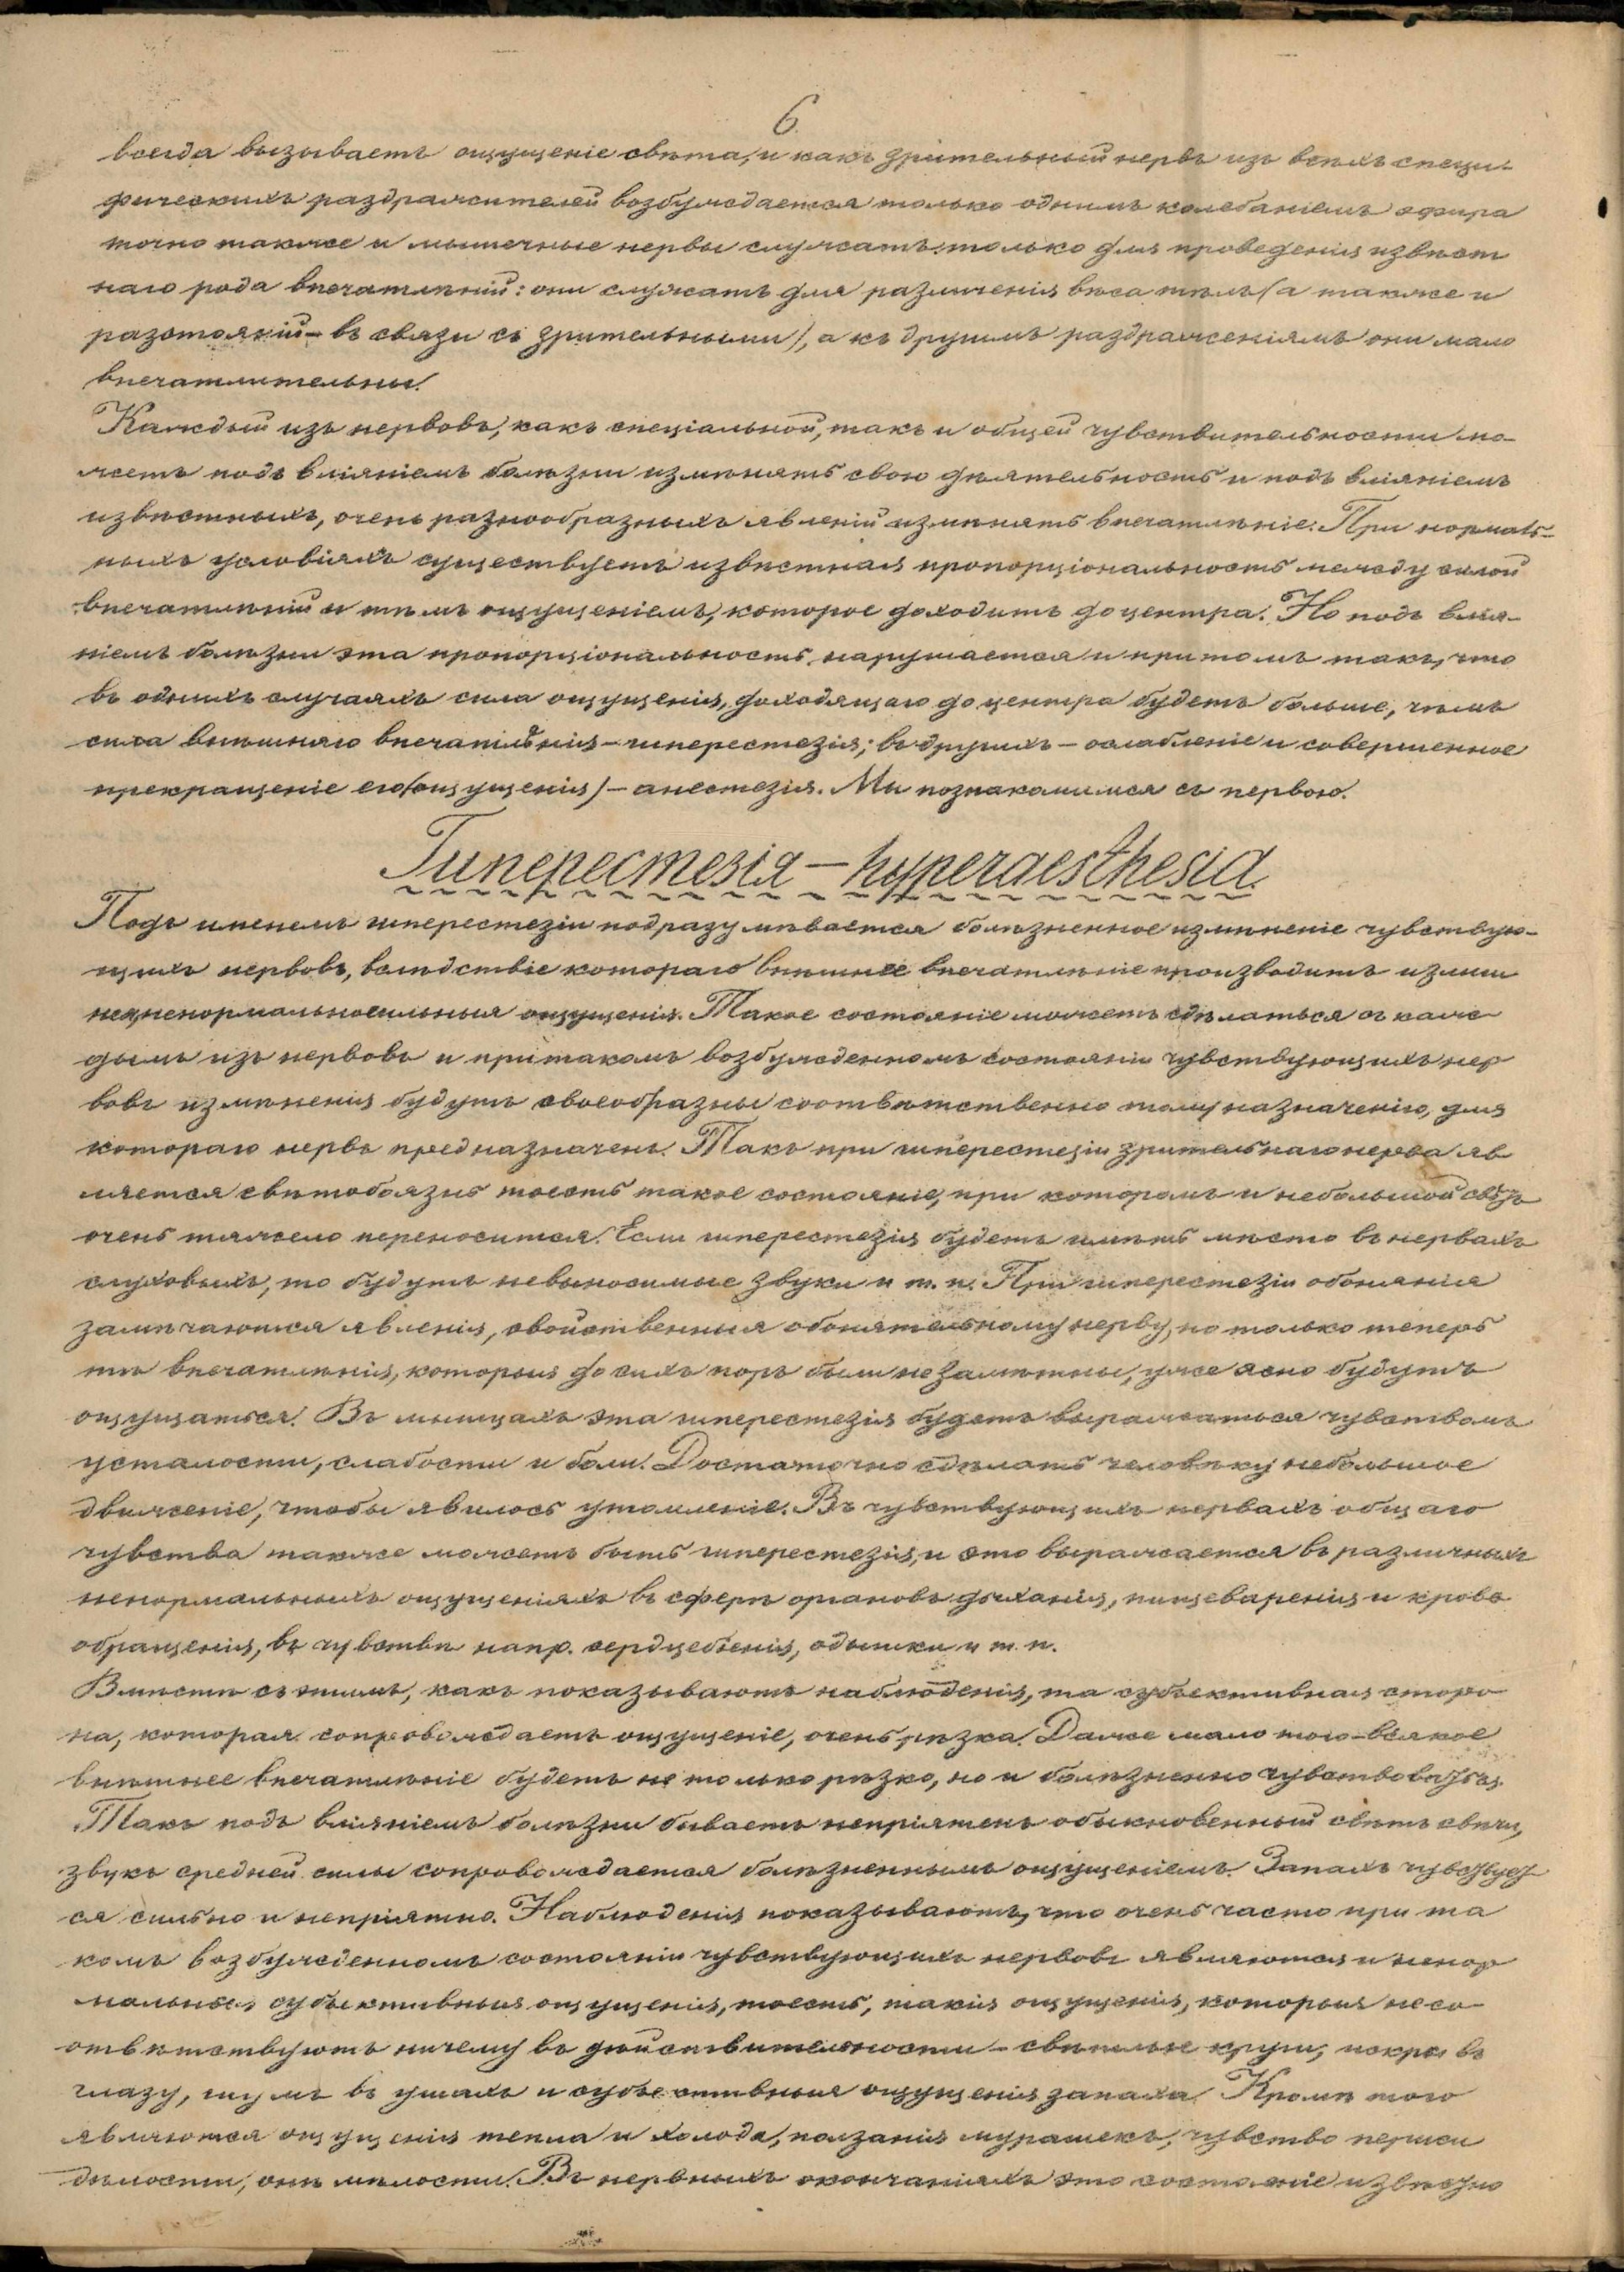 6
всегда вызываетъ ощущеніе свѣта, и какъ зрительный нервъ изъ всѣхъ специ-
фическихъ раздражителей возбуждается только однимъ колебаніемъ эфира
точно также и мышечные нервы служатъ только для проведенія извѣст
наго рода впечатлѣній: они служатъ для различенія вѣса тѣлъ (а также и
разстояній – въ связи съ зрительными), а къ другимъ раздраженіямъ они мало
впечатлительны.
Каждый изъ нервовъ, какъ спеціальной, такъ и общей чувствительности мо-
жетъ подъ вліяніемъ болѣзни измѣнять свою дѣятельность и подъ вліяніемъ
извѣстныхъ, очень разнообразныхъ явленій измѣнять впечатлѣніе. При нормаль-
ныхъ условіяхъ существуетъ извѣстная пропорціональность между силой
впечатлѣній и тѣмъ ощущеніемъ, которое доходитъ до центра. Но подъ влія-
ніемъ болѣзни эта пропорціональность нарушается и притомъ такъ, что
въ однихъ случаяхъ сила ощущенія, доходящаго до центра будетъ больше, чѣмъ
сила внѣшняго впечатлѣнія – гиперестезія; въ другихъ – ослабленіе и совершенное
прекращеніе его (ощущенія) – анестезія. Мы познакомимся съ первою.
Гиперестезія – hyperaesthesia.
Подъ именемъ гиперестезіи подразумѣвается болѣзненное измѣненіе чувствую-
щихъ нервовъ, вслѣдствіе котораго внѣшнее впечатлѣніе производитъ излиш
нея, ненормальносильныя ощущенія. Такое состояніе можетъ сдѣлаться съ каж-
дымъ изъ нервовъ и притакомъ возбужденномъ состояніи чувствующихъ нер
вовъ измѣненія будутъ своеобразны соотвѣтственно тому назначенію, для
котораго нервъ предназначенъ. Такъ при гиперестезіи зрительнаго нерва яв
ляется свѣтобоязнь тоесть такое состояніе, при которомъ и небольшой свѣтъ
очень тяжело переносится. Если гиперестезія будетъ имѣть мѣсто въ нервахъ
слуховыхъ, то будутъ невыносимые звуки и т. п. При гиперестезіи обонянія
замѣчаются явленія, свойственныя обонятельному нерву, но только теперь
тѣ впечатлѣнія, которыя до сихъ поръ были незамѣтны, уже ясно будутъ
ощущаться. Въ мышцахъ эта гиперестезія будетъ выражаться чувствомъ
усталости, слабости и боли. Достаточно сдѣлать человѣку небольшое
движеніе, чтобы явилось утомленіе. Въ чувствующихъ нервахъ общаго
чувства также можетъ быть гиперестезія, и это выражается въ различныхъ
ненормальныхъ ощущеніяхъ въ сферѣ органовъ дыханія, пищеваренія и крово
обращенія, въ чувствѣ напр. сердцебіенія, одышки и т. п.
Вмѣстѣ съ этимъ, какъ показываютъ наблюденія, та субъективная сторо
на, которая сопровождаетъ ощущеніе, очень рѣзка. Даже мало того – всякое
внѣшнее впечатлѣніе будетъ не только рѣзко, но и болѣзненно чувствоваться.
Такъ подъ вліяніемъ болѣзни бываетъ непріятенъ обыкновенный свѣтъ свѣчи,
звукъ средней силы сопровождается болѣзненнымъ ощущеніемъ. Запахъ чувствует
ся сильно и непріятно. Наблюденія показываютъ, что очень часто при та
комъ возбужденномъ состояніи чувствующихъ нервовъ являются и ненор
мальныя субъективныя ощущенія, тоесть, такія ощущенія, которыя не со-
отвѣтствуютъ ничему въ дѣйствительности – свѣтлые круги, искры въ
глазу, шумъ въ ушахъ и субъективныя ощущенія запаха. Кромѣ того
являются ощущенія тепла и холода, ползанія мурашекъ, чувство
онѣмѣлости. Въ нервныхъ окончаніяхъ это состояніе извѣстно